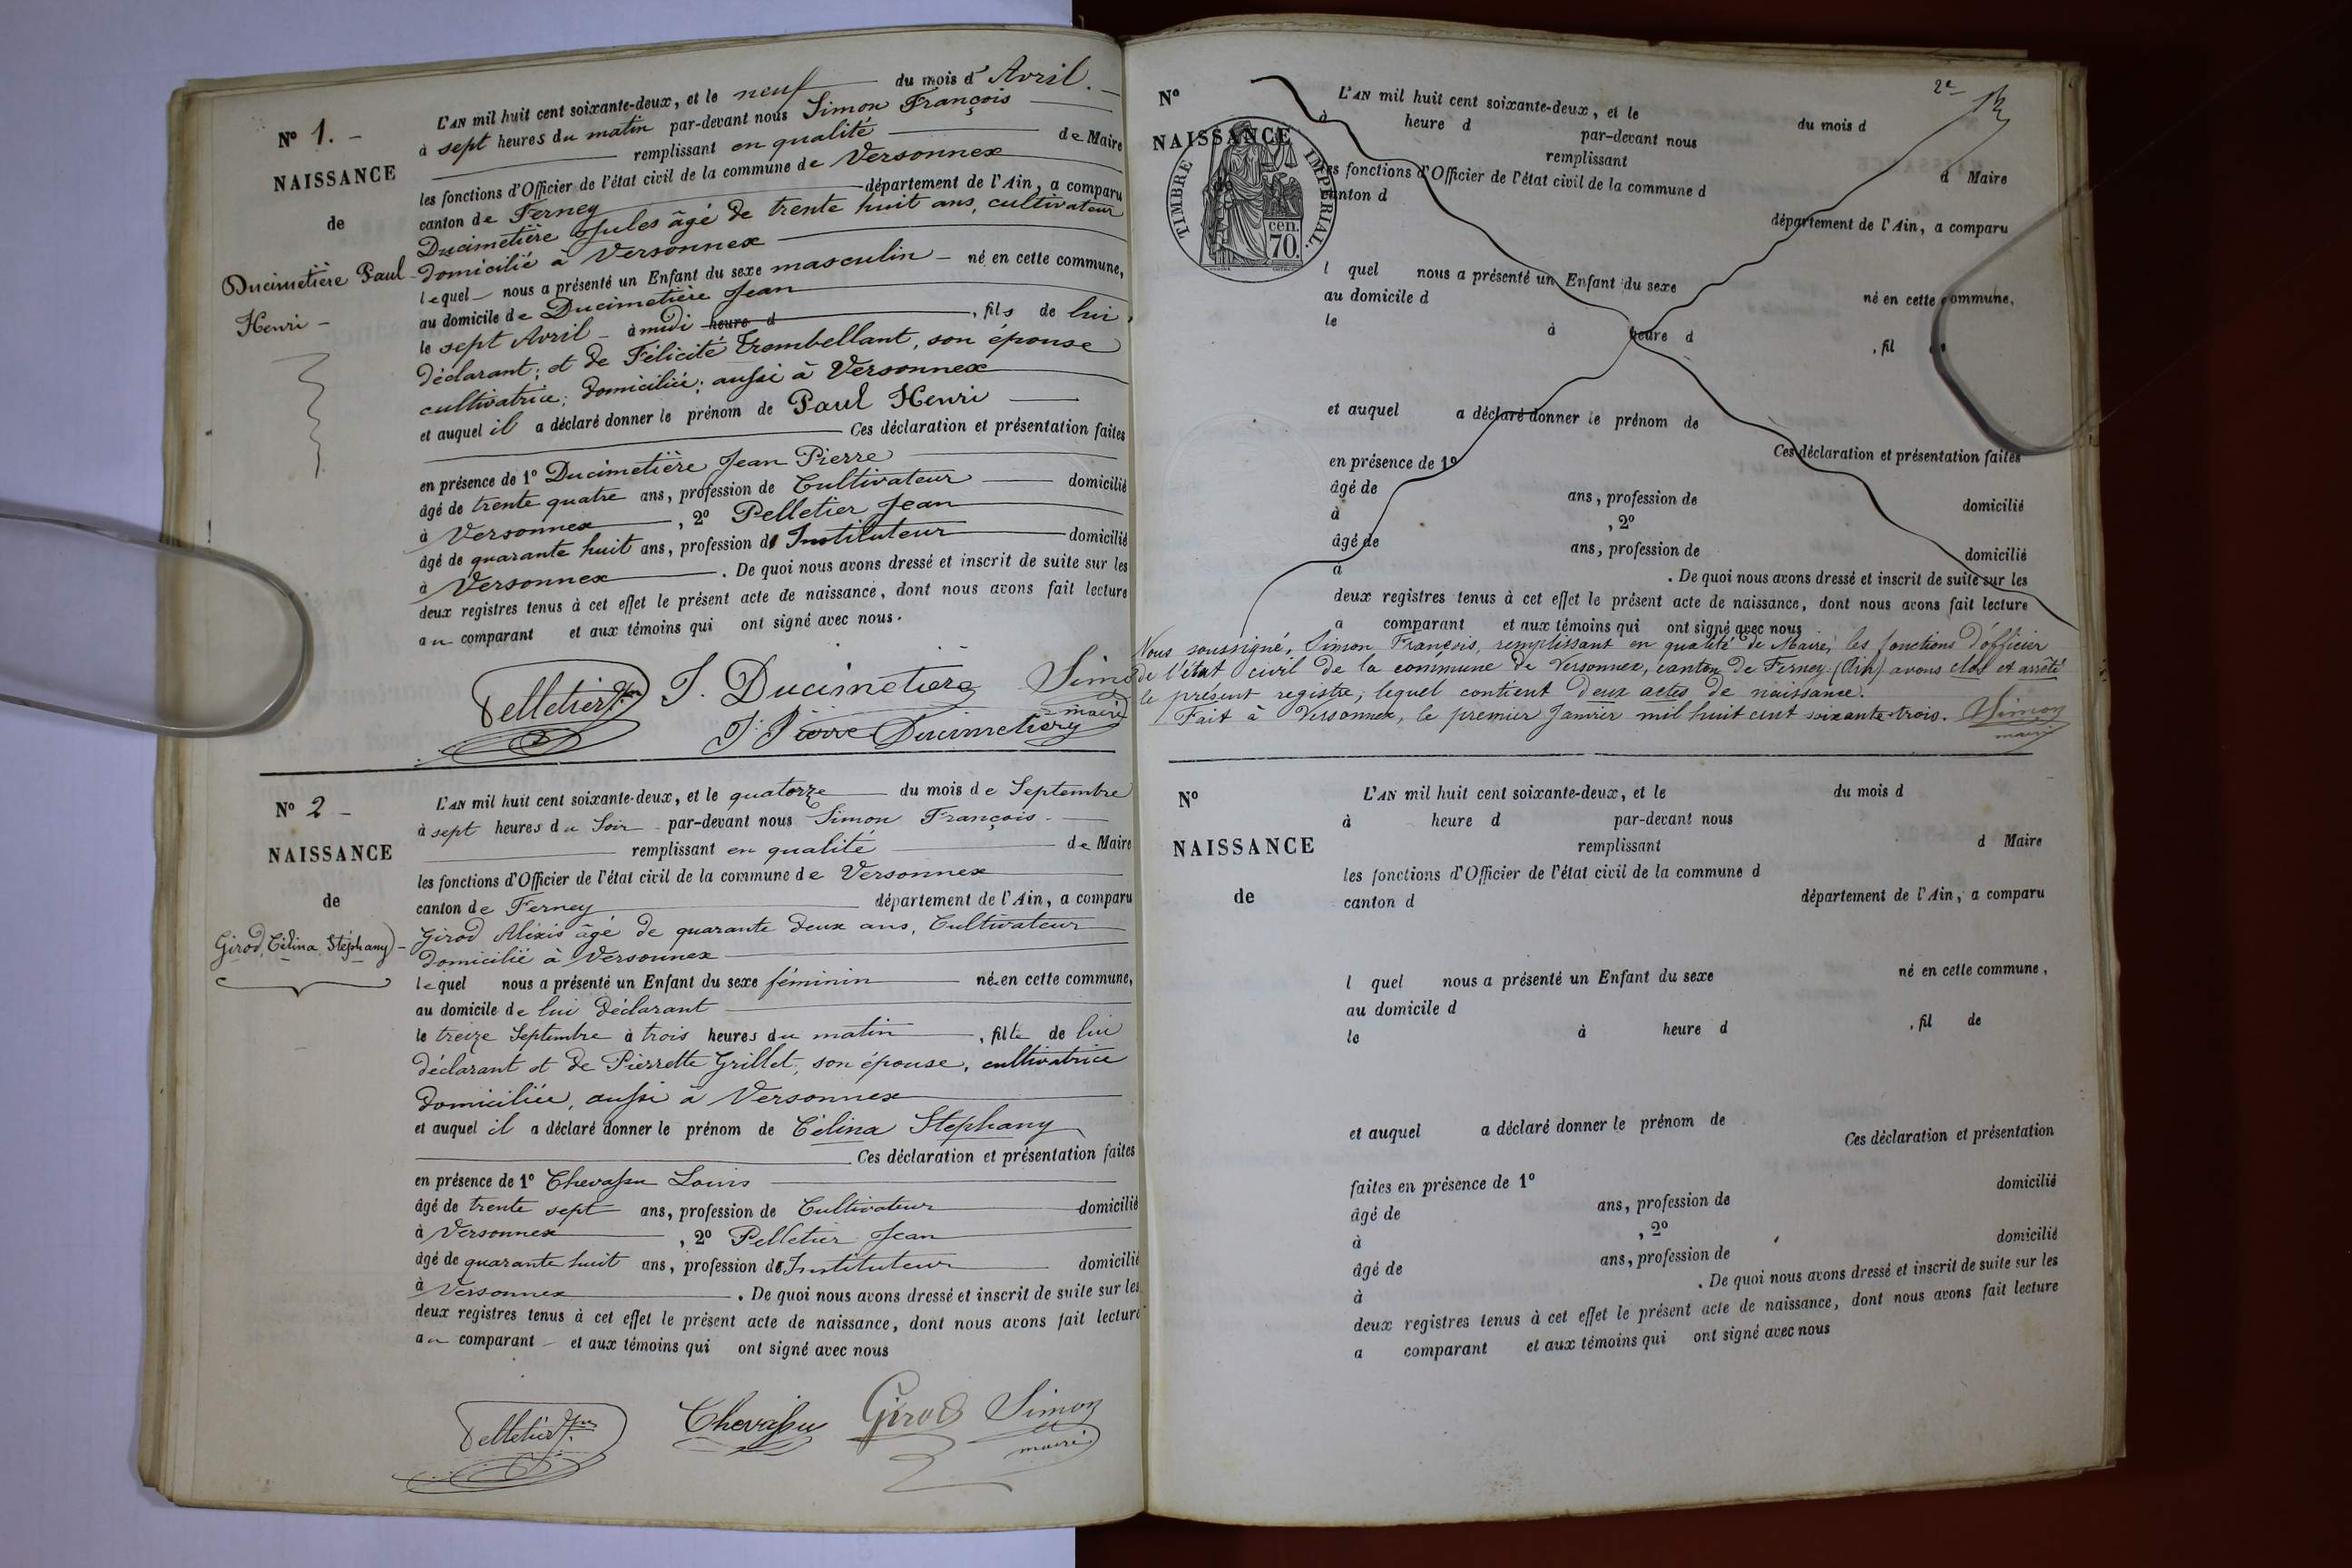 N° 1. -
NAISSANCE
de
Ducimetière Paul
Henri -
L'AN mil huit cent soixante-deux, et le neuf du mois d'Avril.
à sept heures du matin par-devant nous Simon François
remplissant en qualité de Maire
les fonctions d'Officier de l'état civil de la commune de Versonnex
canton de Ferney département de l'Ain, a comparu
Ducimetière Jules âgé de trente huit ans, cultivateur
domicilié à Versonnex
lequel nous a présenté un Enfant du sexe masculin né en cette commune,
au domicile de Ducimetière Jean
le sept Avril - à midi heure d , fils de lui,
déclarant; et de Félicité Trombellant, son épouse
cultivatrice, domiciliée; aussi à Versonnex
et auquel il a déclaré donner le prénom de Paul Henri
Ces déclaration et présentation faites
en présence de 1° Ducimetière Jean Pierre
âgé de trente quatre ans, profession de Cultivateur domicilié
à Versonnex , 2° Pelletier Jean
âgé de quarante huit ans, profession d'Instituteur domicilié
à Versonnex . De quoi nous avons dressé et inscrit de suite sur les
deux registres tenus à cet effet le présent acte de naissance, dont nous avons fait lecture
au comparant et aux témoins qui ont signé avec nous.
Pelletier Jn J. Ducimetière Simon
maire
J. Pierre Ducimetiery
N° 2 -
NAISSANCE
de
Girod, Célina Stéphany -
L'AN mil huit cent soixante-deux, et le quatorze du mois de Septembre
à sept heures du Soir par-devant nous Simon François.
remplissant en qualité de Maire
les fonctions d'Officier de l'état civil de la commune de Versonnex
canton de Ferney département de l'Ain, a comparu
Girod Alexis âgé de quarante deux ans, Cultivateur
domicilié à Versonnex
lequel nous a présenté un Enfant du sexe féminin née en cette commune,
au domicile de lui déclarant
le treize Septembre à trois heures du matin , fille de lui
déclarant et de Pierrette Grillet, son épouse, cultivatrice
domiciliée, aussi à Versonnex
et auquel il a déclaré donner le prénom de Célina Stephany
Ces déclaration et présentation faites
en présence de 1° Chevassu Louis
âgé de trente sept ans, profession de Cultivateur domicilié
à Versonnex , 2° Pelletier Jean
âgé de quarante huit ans, profession d'Instituteur domicilié
à Versonnex . De quoi nous avons dressé et inscrit de suite sur les
deux registres tenus à cet effet le présent acte de naissance, dont nous avons fait lecture
au comparant - et aux témoins qui ont signé avec nous
Pelletier Jn Chevassu Girod Simon
maire
2e
N°
NAISSANCE
TIMBRE IMPÉRIAL.
cen.
70.
L'AN mil huit cent soixante-deux, et le du mois d
à heure d par-devant nous
remplissant d Maire
les fonctions d'Officier de l'état civil de la commune d
canton d département de l'Ain, a comparu
l quel nous a présenté un Enfant du sexe né en cette commune,
au domicile d
le à heure d , fil de
et auquel a déclaré donner le prénom de
Ces déclaration et présentation faites
en présence de 1°
âgé de ans, profession de domicilié
à , 2°
âgé de ans, profession de domicilié
à . De quoi nous avons dressé et inscrit de suite sur les
deux registres tenus à cet effet le présent acte de naissance, dont nous avons fait lecture
a comparant et aux témoins qui ont signé avec nous
Nous soussigné, Simon François, remplissant en qualité de Maire, les fonctions d'officier
de l'état civil de la commune de Versonnex, canton de Ferney (Ain) avons clos et arrêté
le présent registre, lequel contient deux actes de naissance.
Fait à Versonnex, le premier Janvier mil huit cent soixante-trois. Simon
maire
N°
NAISSANCE
de
L'AN mil huit cent soixante-deux, et le du mois d
à heure d par-devant nous
remplissant d Maire
les fonctions d'Officier de l'état civil de la commune d
canton d département de l'Ain, a comparu
l quel nous a présenté un Enfant du sexe né en cette commune,
au domicile d
le à heure d , fil de
et auquel a déclaré donner le prénom de
Ces déclaration et présentation
faites en présence de 1° domicilié
âgé de ans, profession de
à , 2° domicilié
âgé de ans, profession de
à . De quoi nous avons dressé et inscrit de suite sur les
deux registres tenus à cet effet le présent acte de naissance, dont nous avons fait lecture
a comparant et aux témoins qui ont signé avec nous